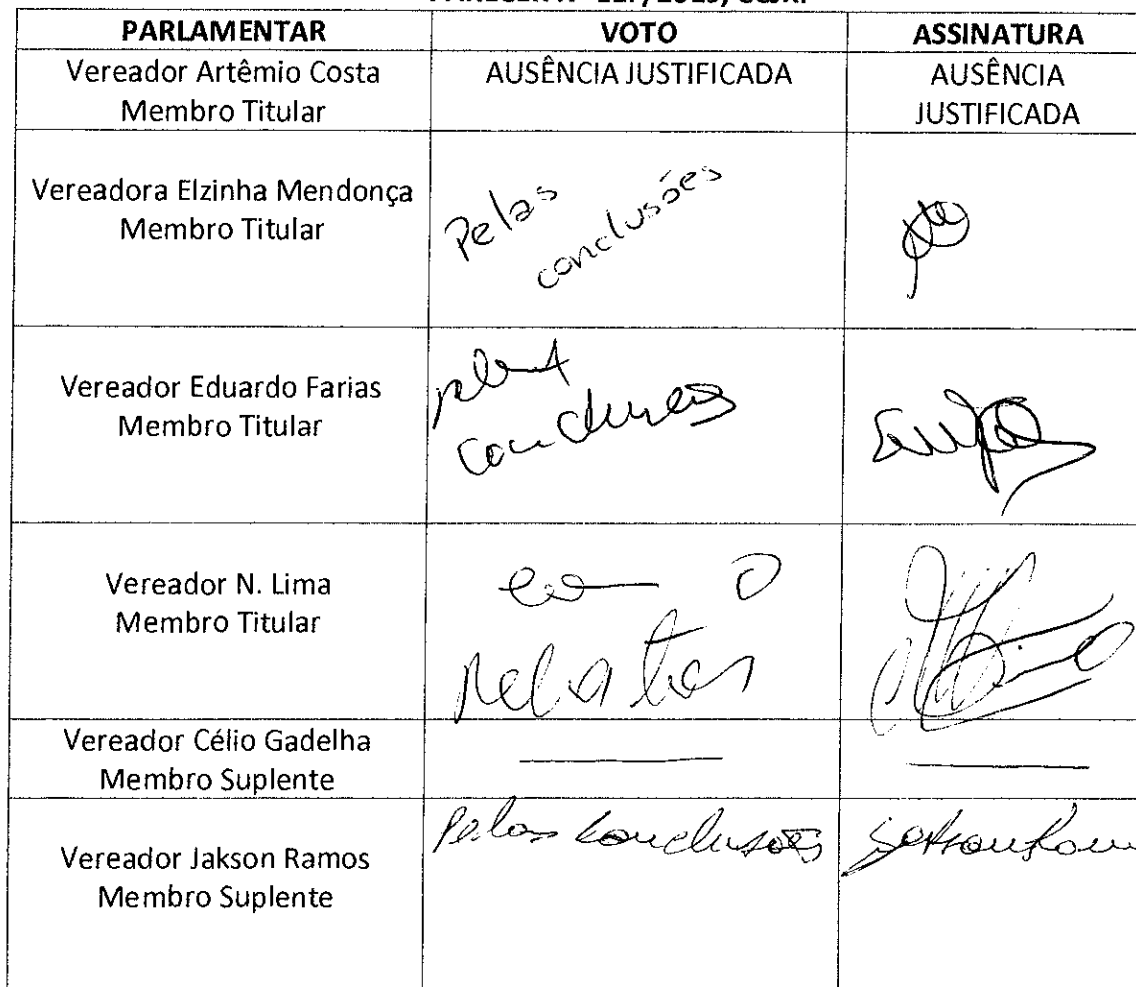 PARLAMENTAR VOTO ASSINATURA
Vereador Artêmio Costa
Membro Titular
AUSÊNCIA JUSTIFICADA
AUSÊNCIA
JUSTIFICADA
Vereadora Elzinha Mendonça
Membro Titular
Pelas
conclusões
Vereador Eduardo Farias
Membro Titular
pelas
conclusões
Vereador N. Lima
Membro Titular
com o
relator
Vereador Célio Gadelha
Membro Suplente
Vereador Jakson Ramos
Membro Suplente
Pelas conclusões